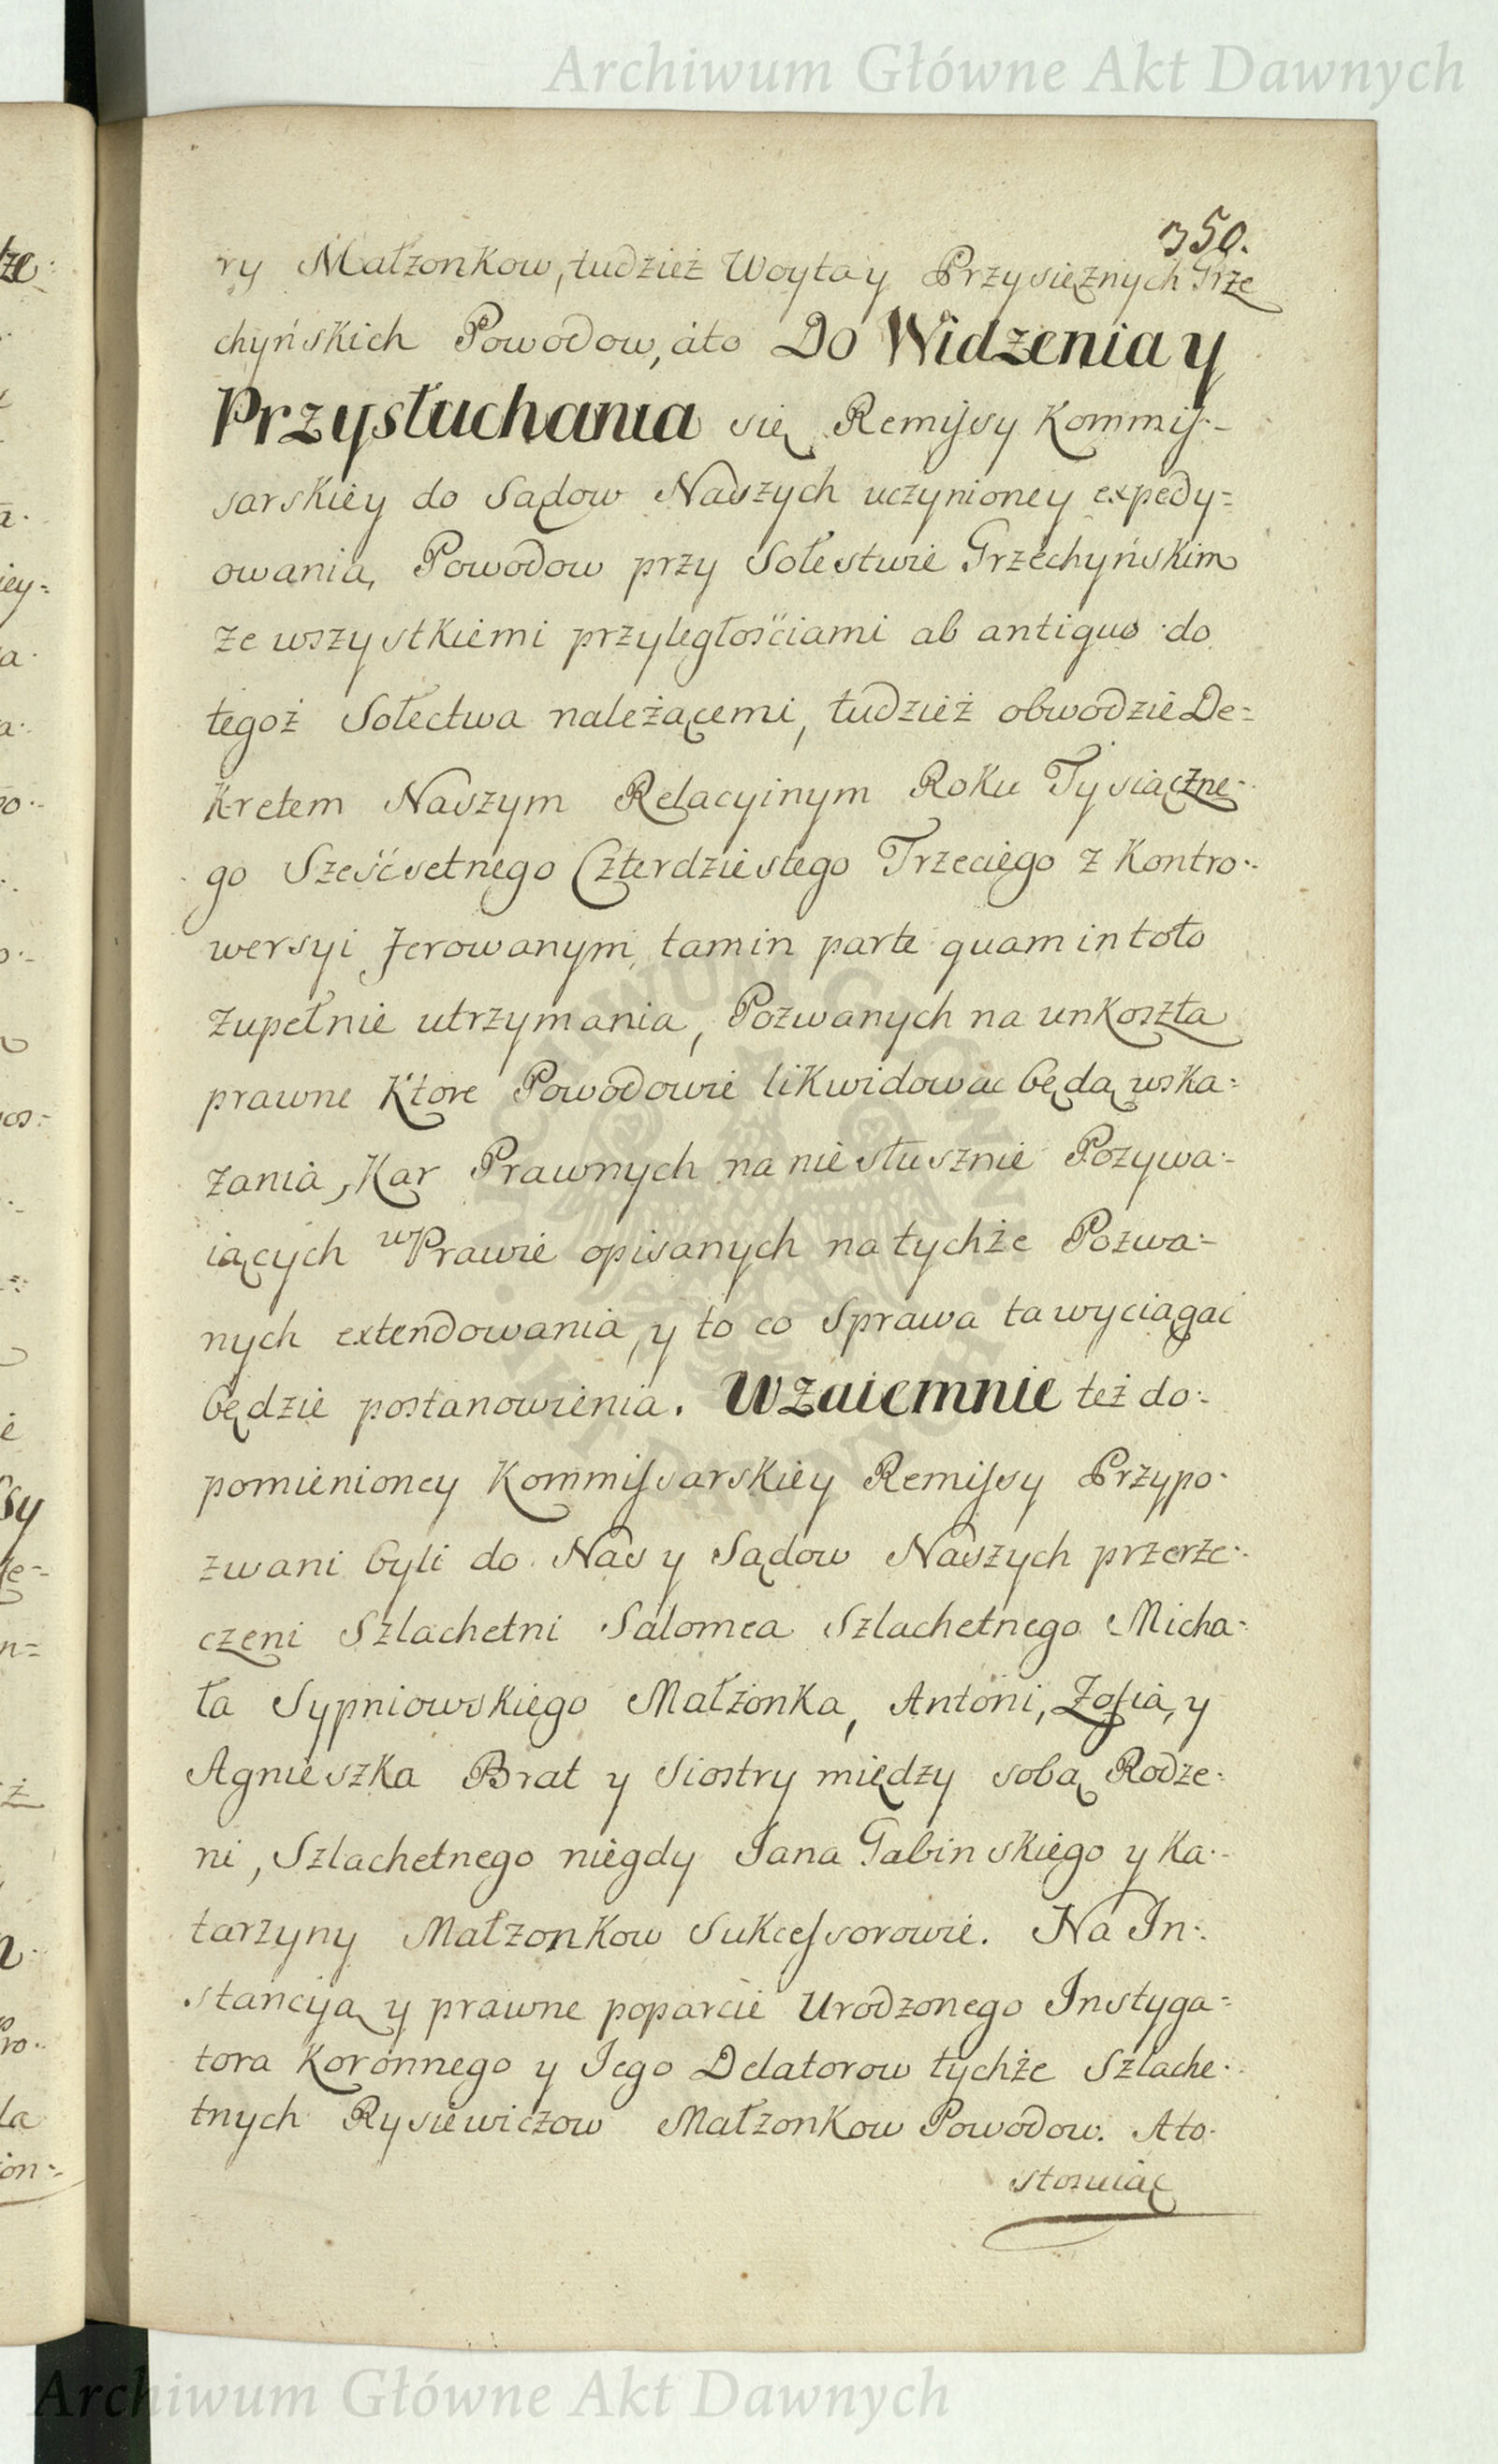 Archiwum Główne Akt Dawnych
350.
ry Małzonkow, tudzież Woyta y Przysiężnych Grze
chyńskich Powodow, áto Do Widzenia y
Przysłuchania się Remissy Kommis-
sarskiey do Sądow Naszych uczynioney expedy=
owania, Powodow przy Sołestwie Grzechyńskim
ze wszystkiemi przyległościami ab antiquo do
tegoż Sołectwa należącemi, tudzież obwodzie De=
kretem Naszym Relacyinym Roku Tysiączne-
go Sześćsetnego Czterdziestego Trzeciego z Kontro-
wersyi ferowanym tam in parte quam in toto
zupełnie utrzymania, Pozwanych na unkoszta
prawne Ktore Powodowie likwidowac będą wska=
zania, Kar Prawnych na niesłusznie Pozywa-
iących w Prawie opisanych na tychże Pozwa-
nych extendowania, y to co Sprawa ta wyciągać
będzie postanowienia. Wzaiemnie też do-
pomienioney Kommissarskiey Remissy Przypo-
zwani byli do Nas y Sądow Naszych przerze-
czeni Szlachetni Salomea Szlachetnego Micha-
ła Sypniowskiego Małżonka, Antoni, Zofia, y
Agnieszka Brat y Siostry między sobą Rodze-
ni, Szlachetnego niegdy Jana Gabinskiego y Ka-
tarzyny Małzonkow Sukcessorowie. Na In-
stancyą y prawne poparcie Urodzonego Instyga=
tora Koronnego y Jego Delatorow tychże Szlache-
tnych Rysiewiczow Małzonkow Powodow. Ato
stosuiąc
Archiwum Główne Akt Dawnych